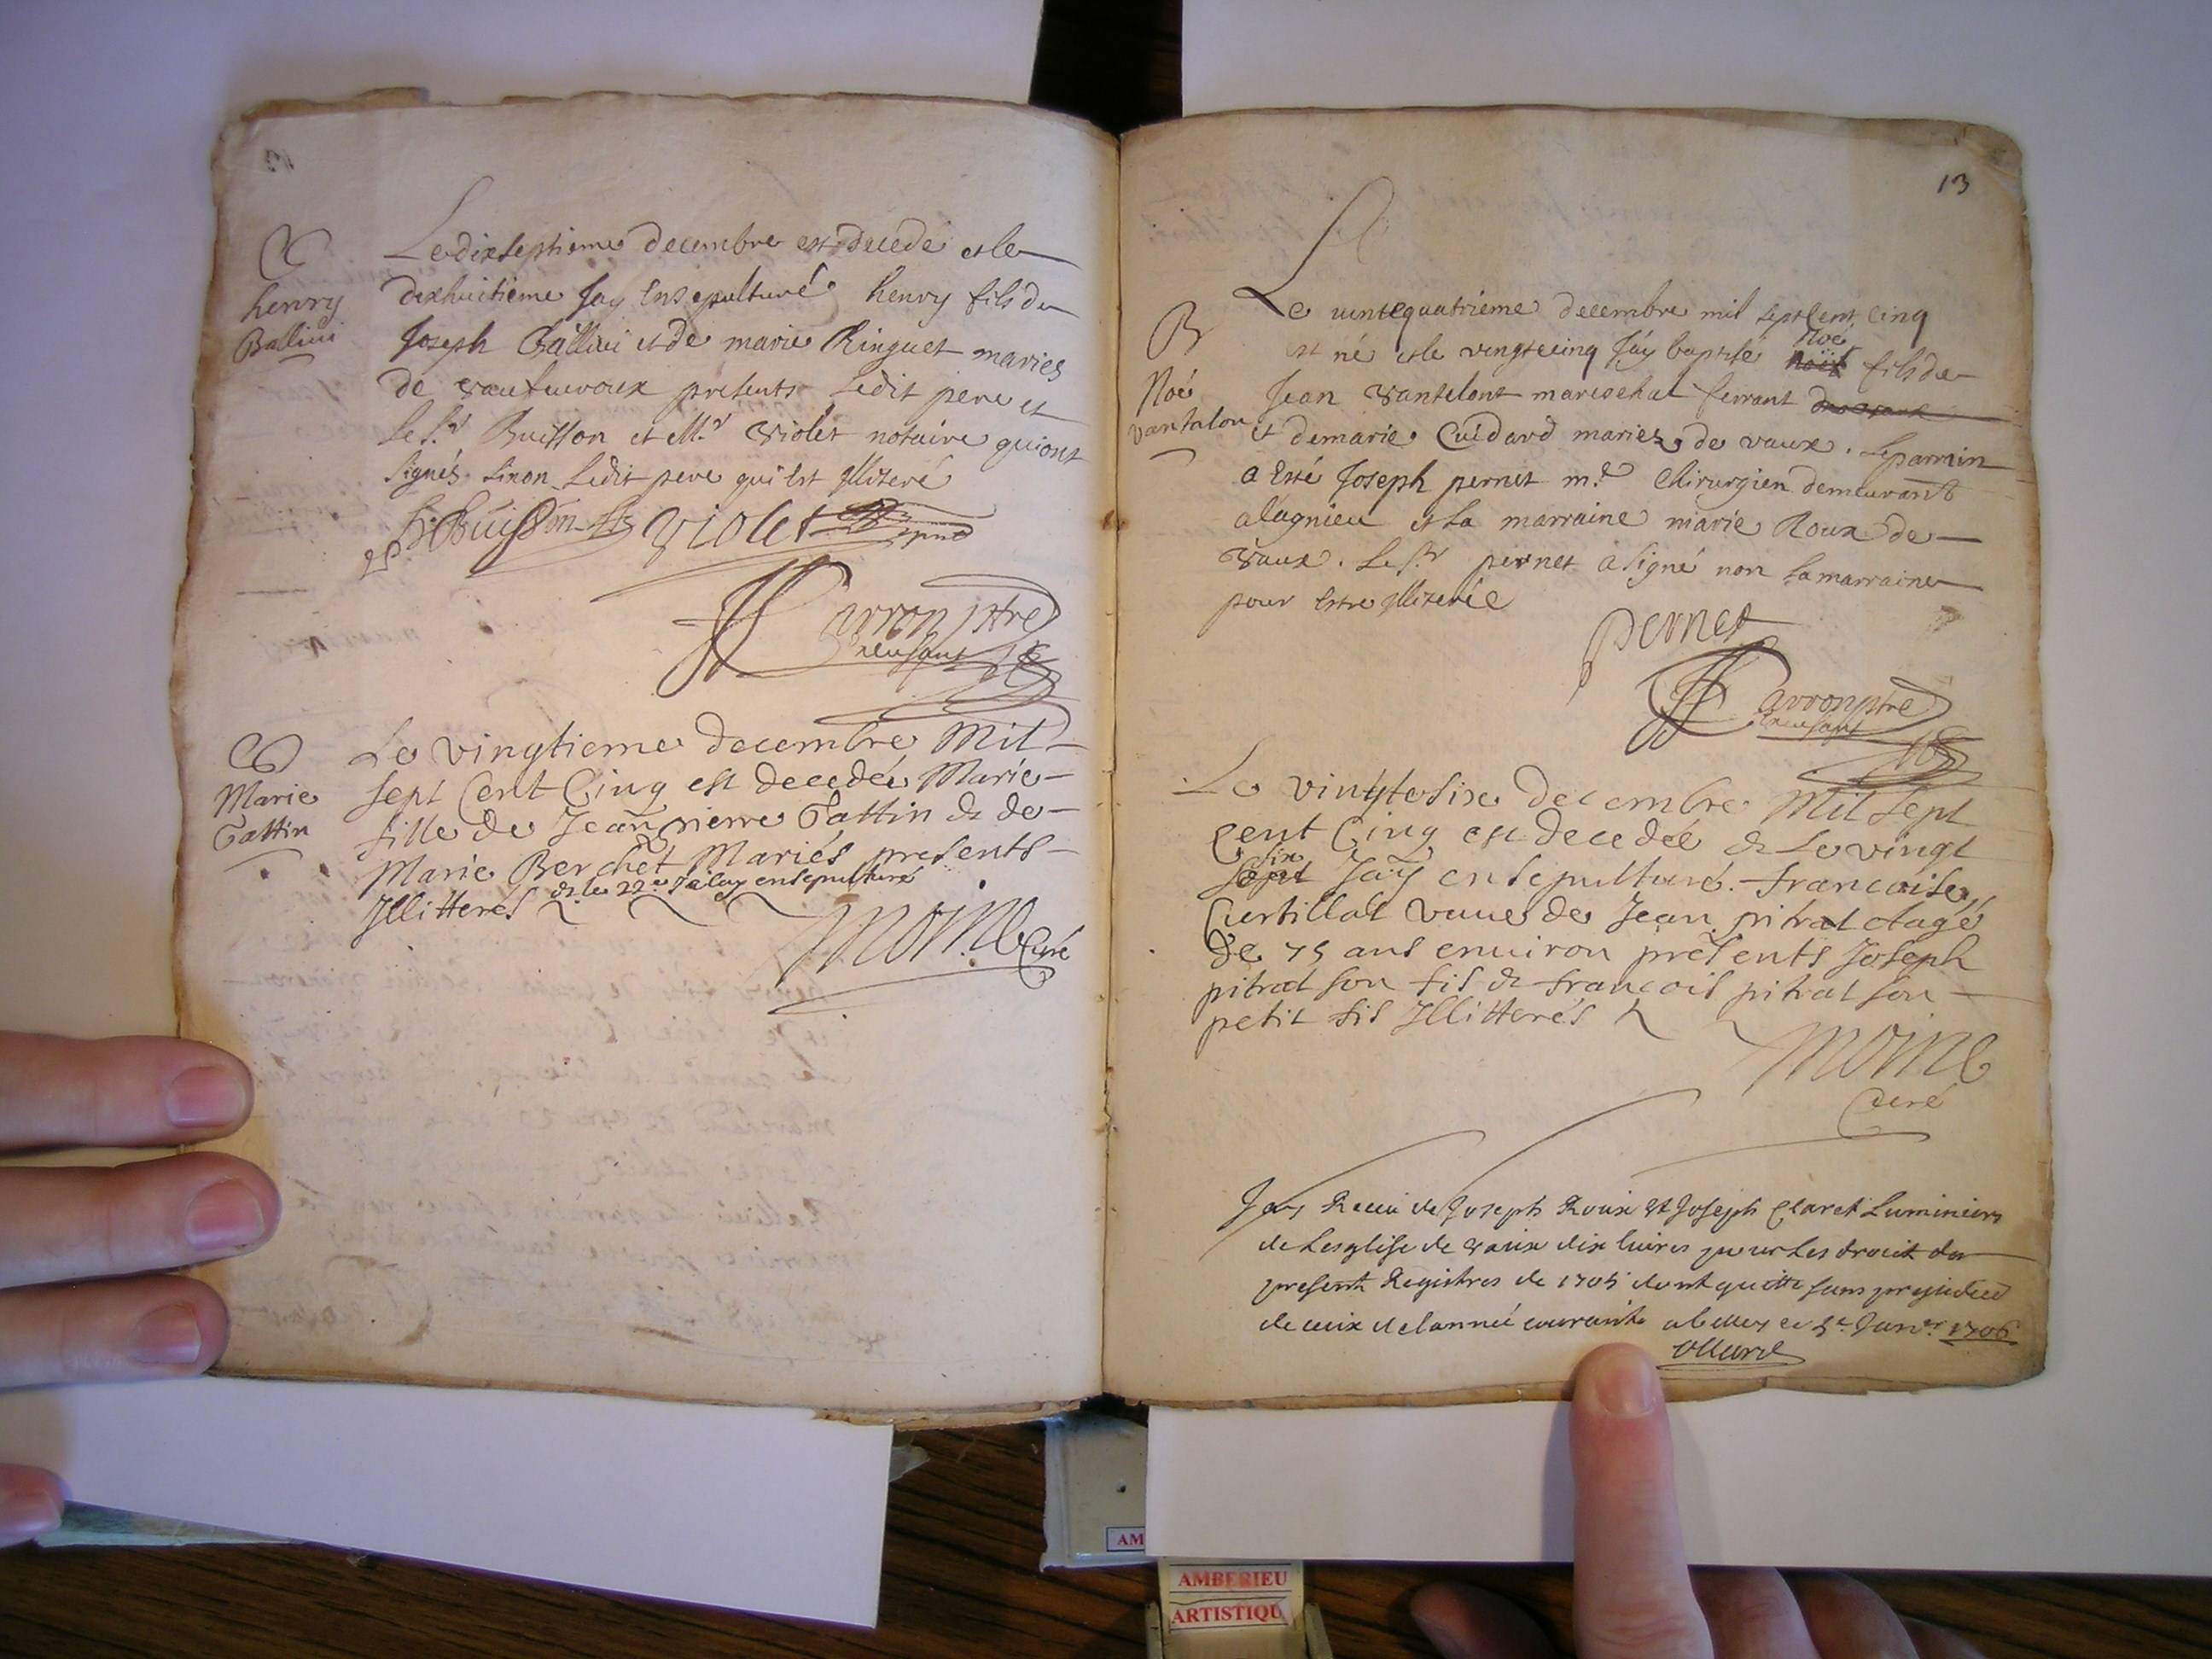 Le dixseptieme decembre est decedé et le
dixhuitieme Jay Ensepulturé henry fils de
Joseph Ballivi et de marie Ringuet mariés
de presents Ledit pere et
Le Sr Buisson et Mr violet notaire qui ont
signés sinon Ledit pere qui est illiteré
henry
Ballivi
Buisson violet
Carron ptre
Le vingtieme decembre Mil
sept Cent Cinq est decedée Marie
fille de Jean pierre Tattin & de
Marie Berchet Mariés presents
& le 22e Je lay ensepulturé
Illitterés
Marie
Tattin
Moine Curé
13
Le vintequatrieme decembre mil sept cent cinq
est né et le vingtecinq Jáy baptisé Noé fils de
Jean vantelont mareschal ferrant
et de marie Cuidard mariez de vaux. Le parrain
a Esté Joseph pernet me Chirurgien demeurant
a lagnieu et La marraine marie Roux de
vaux. Le Sr pernet a signé non la marraine
pour Estre illiterée
B
Noé
vantalon
pernet
Carron ptre
Le vingtesix decembre Mil sept
cent Cinq est decedée & Le vingt
six
sept Jay ensepulturé francoise
Curtillat veuve de Jean pitrat &agé
de 75 ans environ presents Joseph
pitrat son fis & francois pitrat son
petit fis Illitterés
Moine
Curé
Jay Receu de Joseph Roux Et Joseph Claret Luminiers
de Lesglise de vaux dix livres pour Les droit du
present Registres de 1705 dont quitte sans prejudice
de ceux de lannée courante a belley ce 5e Janer 1706
AM
AMBERIEU
ARTISTIQU